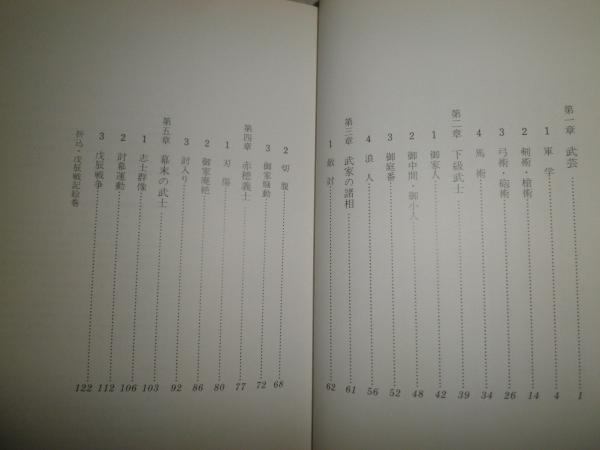 第一章 武芸 1
1 軍学 4
2 剣術・槍術 14
3 弓術・砲術 26
4 馬術 34
第二章 下級武士 39
1 御家人 42
2 御中間・御小人 48
3 御庭番 52
4 浪人 56
第三章 武家の諸相 61
1 敵討 62
2 切腹 68
3 御家騒動 72
第四章 赤穂義士 77
1 刃傷 80
2 御家廃絶 86
3 討入り 92
第五章 幕末の武士 103
1 志士群像 106
2 討幕運動 112
3 戊辰戦争 122
折込・戊辰戦記絵巻